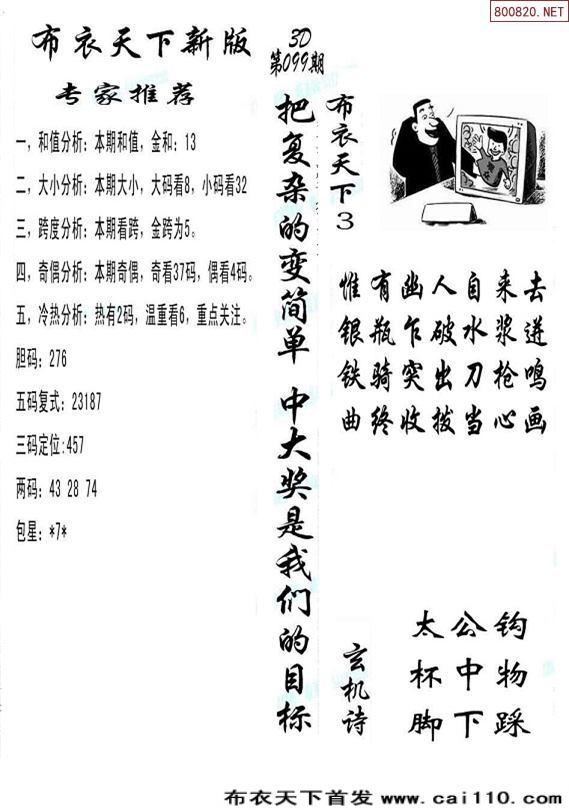 800820.NET
布衣天下新版
专家推荐
一，和值分析：本期和值，金和：13
二，大小分析：本期大小，大码看8，小码看32
三，跨度分析：本期看跨，金跨为5。
四，奇偶分析：本期奇偶，奇看37码，偶看4码。
五，冷热分析：热有2码，温重看6，重点关注。
胆码：276
五码复式：23187
三码定位:457
两码：43 28 74
包星：*7*
3D
第099期
把复杂的变简单 中大奖是我们的目标
布衣天下3
惟有幽人自来去
银瓶乍破水浆迸
铁骑突出刀枪鸣
曲终收拨当心画
玄机诗
太公钩
杯中物
脚下踩
布衣天下首发 www.cai110.com